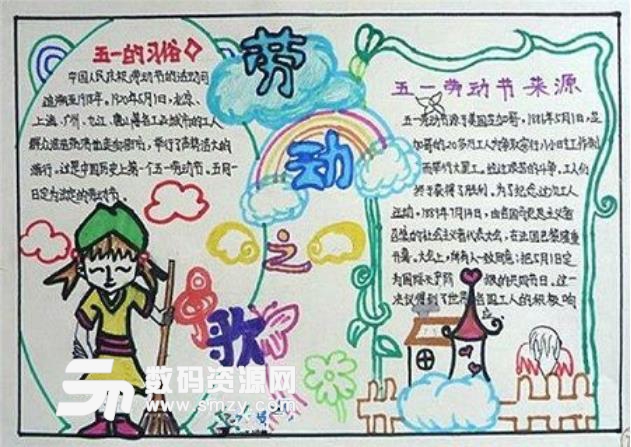 五一的习俗
中国人民庆祝劳动节的活动可
追溯至1918年。1920年5月1日,北京、
上海、广州、九江、唐山等各工业城市的工人
群众浩浩荡荡地走向街市,举行了声势浩大的
游行,这是中国历史上第一个五一劳动节。五月一
日定为法定的劳动节。
劳
动
之
歌
五一劳动节来源
五一劳动节源于美国芝加哥,1886年5月1日,芝
加哥的20多万工人为争取实行八小时工作制
而举行大罢工。经过艰苦的斗争,工人们
终于获得了胜利。为了纪念这次工人
运动,1889年7月14日,由各国马克思主义者
召集的社会主义者代表大会,在法国巴黎隆重
开幕。大会上,所有人一致同意:把5月1日定
为国际无产阶级的共同节日。这一
决议得到了世界各国工人的积极响
应。
数码资源网
www.smzy.com